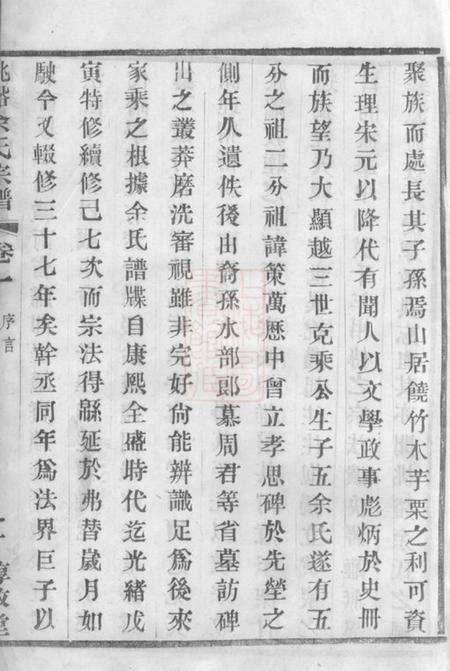 聚族而處長其子孫焉山居饒竹木芋栗之利可資
生理宋元以降代有聞人以文學政事彪炳於史冊
而族望乃大顯越三世克乘公生子五余氏遂有五
分之祖二分祖諱策萬歷中曾立孝思碑於先塋之
側年久遺佚後出裔孫水部郎慕周君等省墓訪碑
出之叢莽磨洗審視雖非完好尙能辨識足爲後來
家乘之根據余氏譜牒自康熙全盛時代迄光緒戊
寅特修續修已七次而宗法得緜延於弗替歲月如
駛今又輟修三十七年矣幹丞同年爲法界巨子以
余氏宗譜 卷一 序言